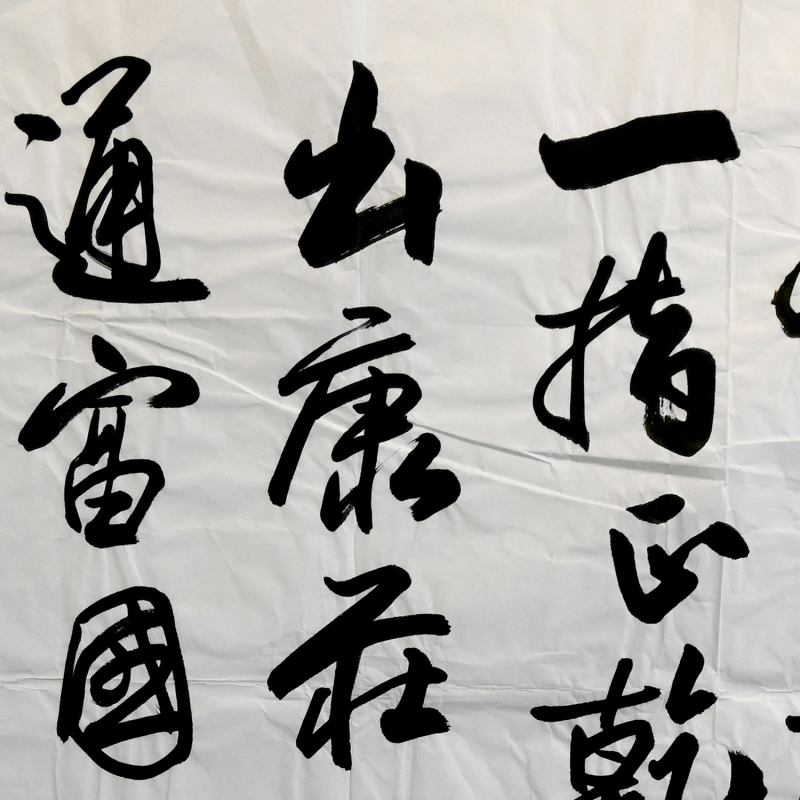 一指正乾
出康莊
通富國